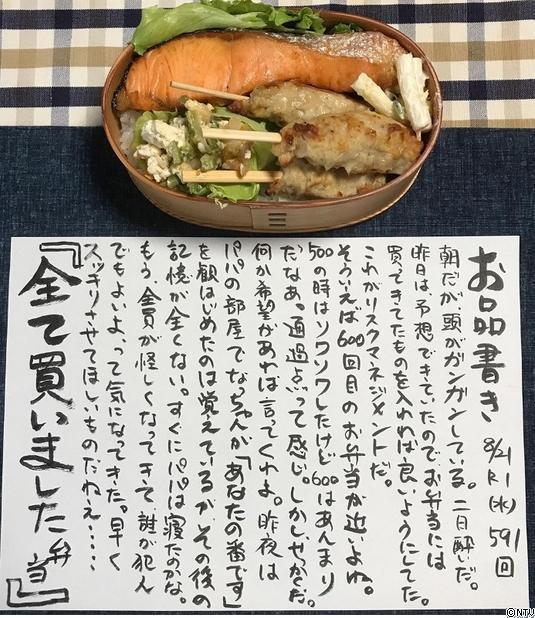 お品書き
8/21
R1
(水)
591
回
朝だが頭がガンガンしている。二日酔いだ。
昨日は予想できていたのでお弁当には
買ってきてたものを入れれば良いようにしてた。
これがリスクマネジメントだ。
そういえば600回目のお弁当が近いよね。
500の時はソワソワしたけど600はあんまり
だなぁ。通過点って感じ。しかしせっかくだ。
何か希望があれば言ってくれよ。昨夜は
パパの部屋でなっちゃんが「あなたの番です」
を観はじめたのは覚えているが、その後の
記憶が全くない。すぐにパパは寝たのかな。
もう、全員が怪しくなってきて誰が犯人
でもよいよ、って気になってきた。早く
スッキリさせてほしいものだねぇ・・・・・
『全て買いました弁当』
©NTV